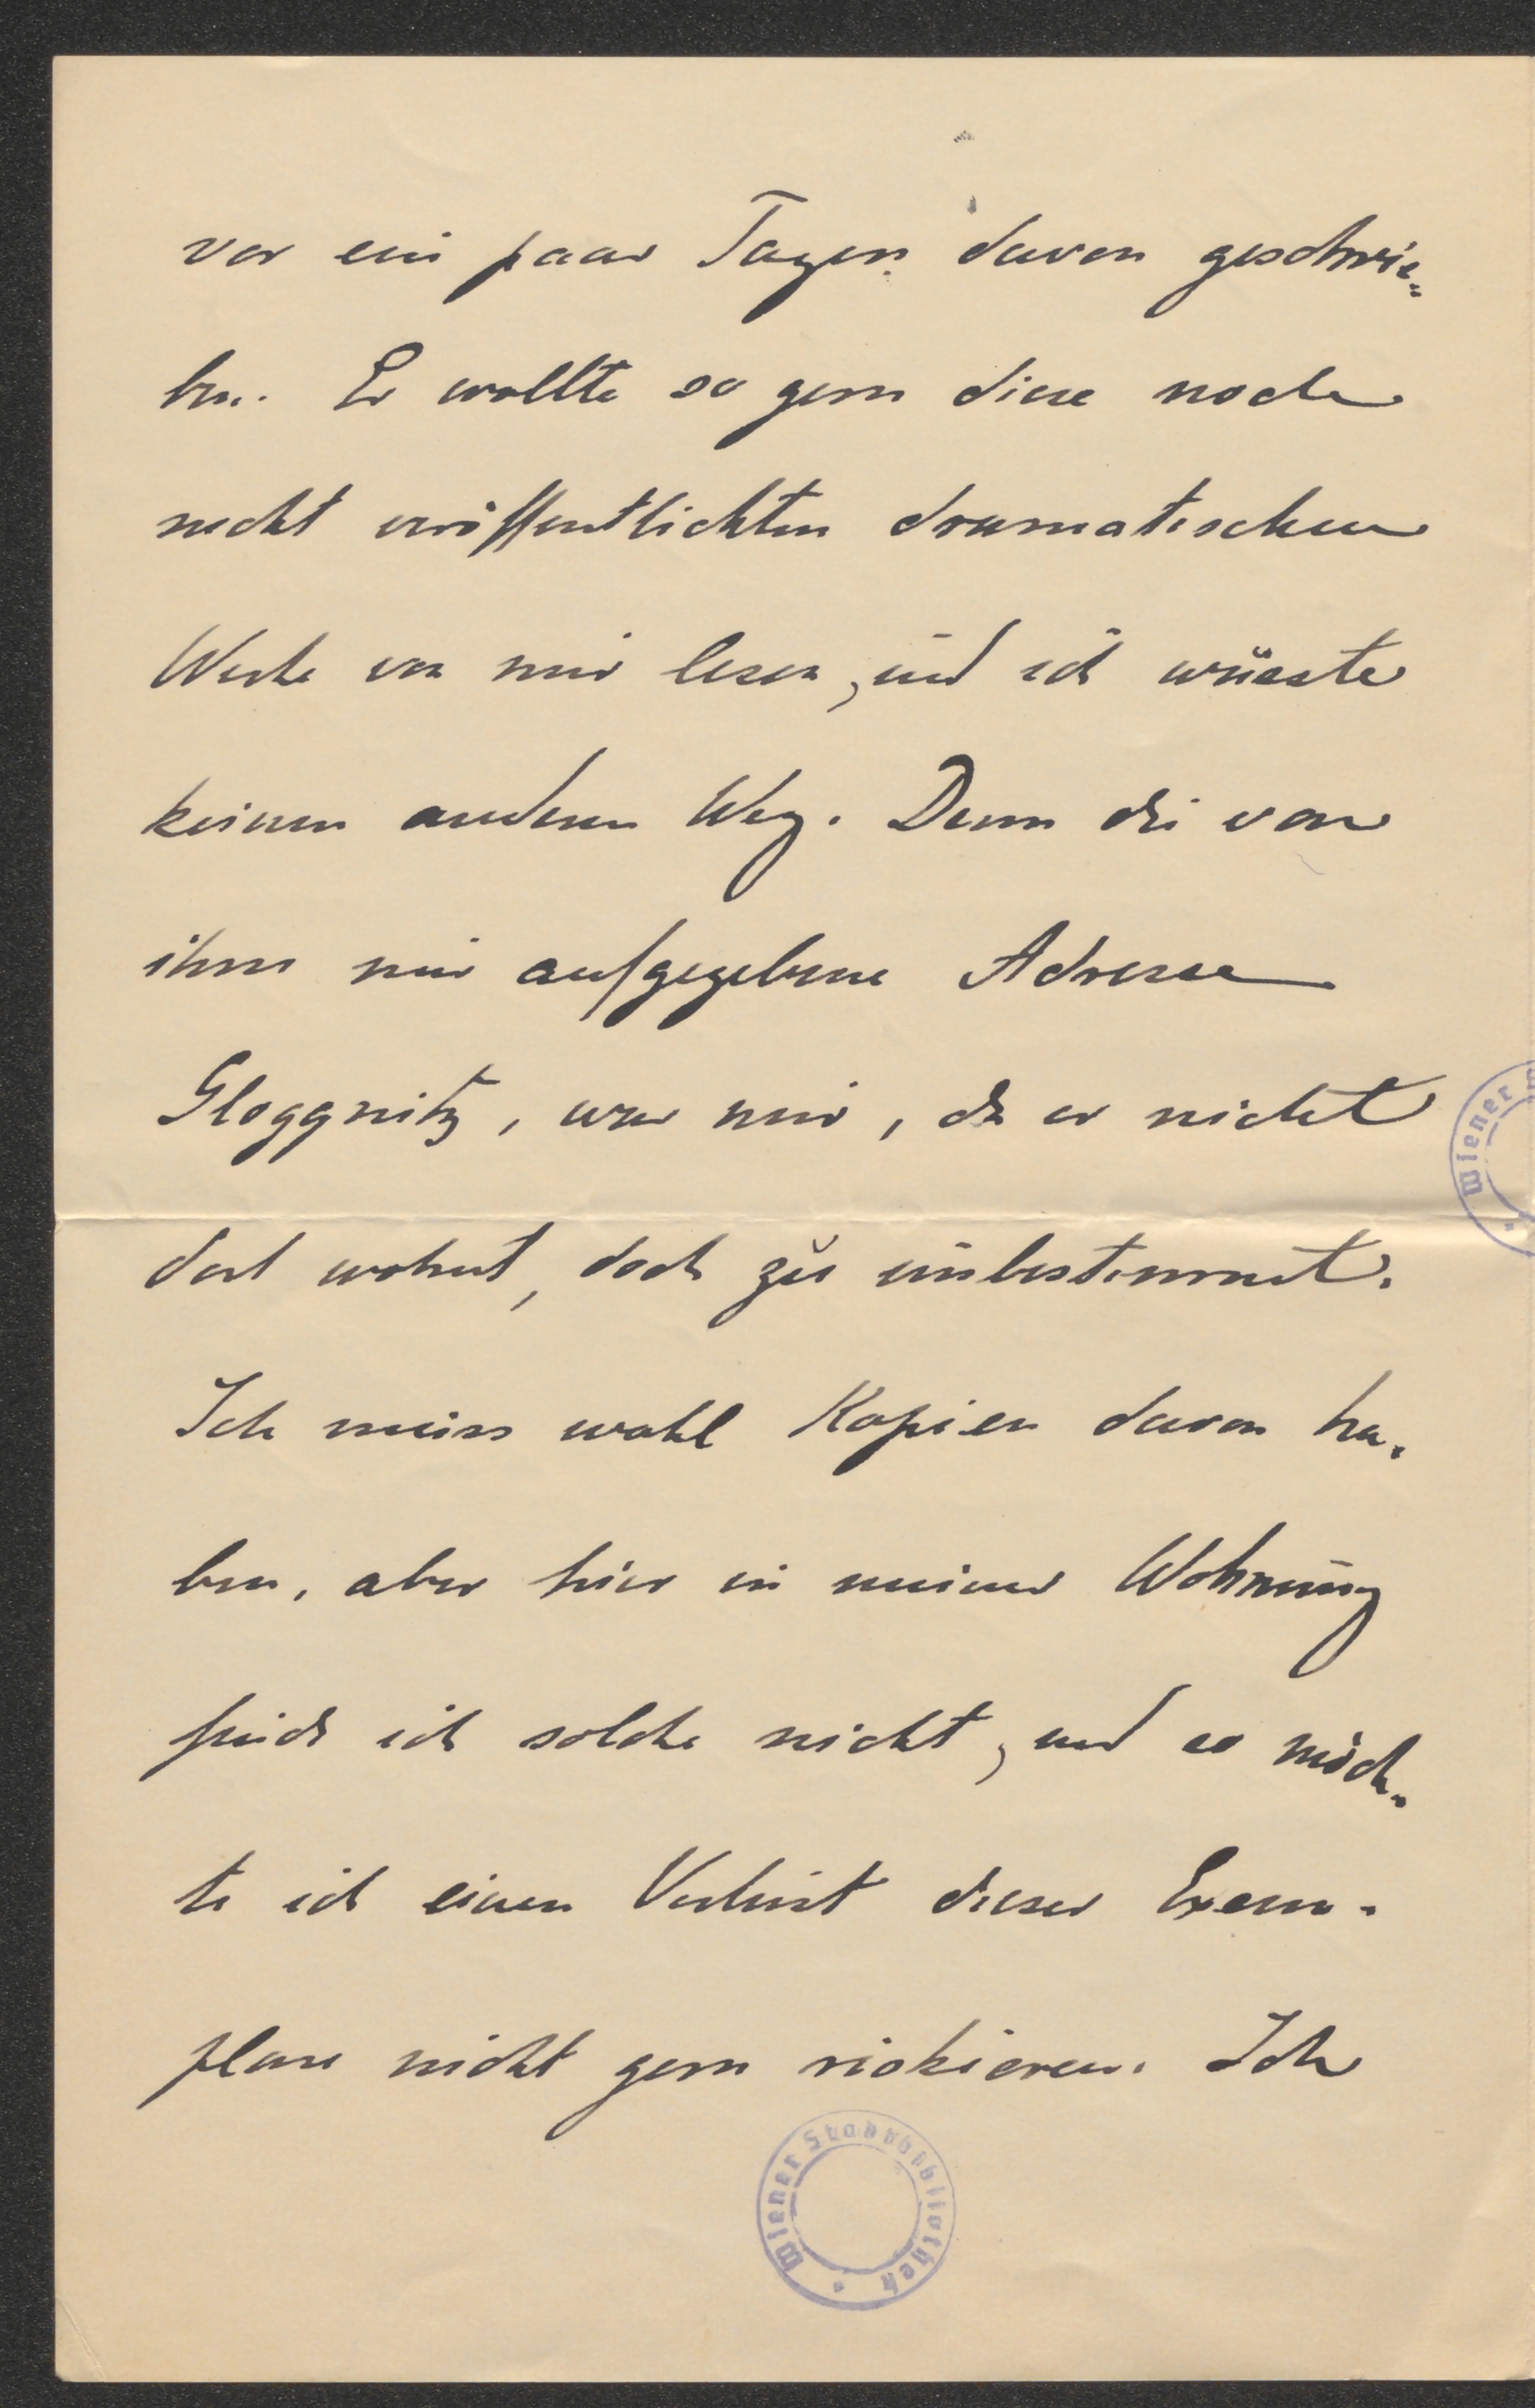 vor ein paar Tagen davon geschrie=
ben. Er wollte so gern diese noch
nicht veröffentlichten dramatischen
Werke von mir lesen, und ich wüsste
keinen anderen Weg. Denn die von
ihm mir aufgegebene Adresse
Gloggnitz, war mir, da er nicht
dort wohnt, doch zu unbestimmt.
Ich muss wohl Kopien davon ha-
ben, aber hier in meiner Wohnung
finde ich solche nicht, und so möch-
te ich einen Verlust dieser Exem-
plare nicht gern riskieren. Ich
Wiener
Wiener Stadtbibliothek